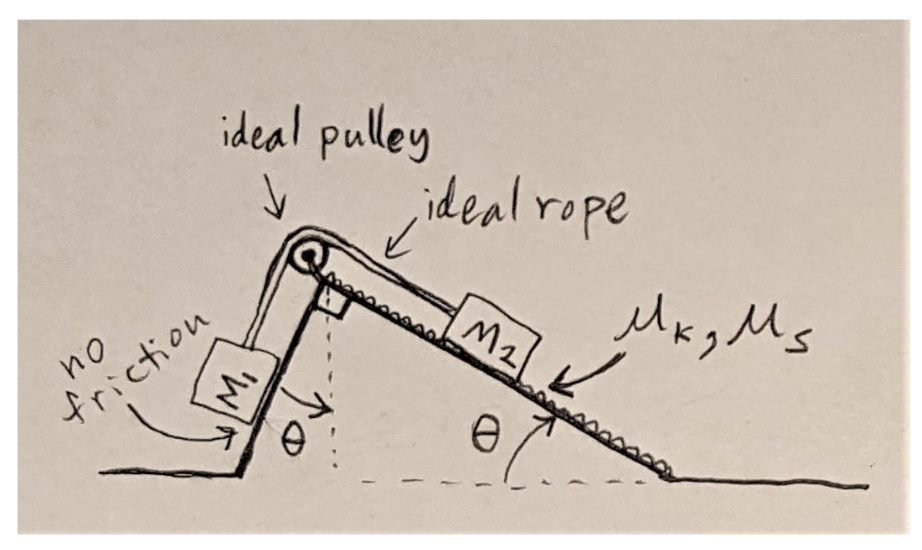 ideal pulley
ideal rope
no
friction
M₁
M₂
μₖ, μₛ
θ
θ